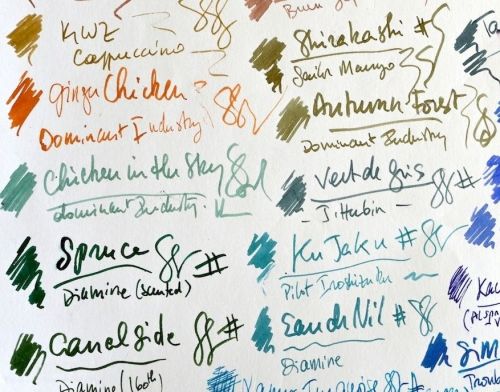 KWZ
Cappuccino
ginger Chicken
Dominant Industry
Chicken in the Sky
dominant Industry
Spruce #
Diamine (scented)
Canal Side #
Diamine (160th
Shirakashi #
Sailor Manyo
Autumn Forest
Dominant Industry
Vert de Gris #
- J. Herbin -
Ku Jaku #
Pilot Iroshizuku
Eau de Nil #
Diamine
Turquoise